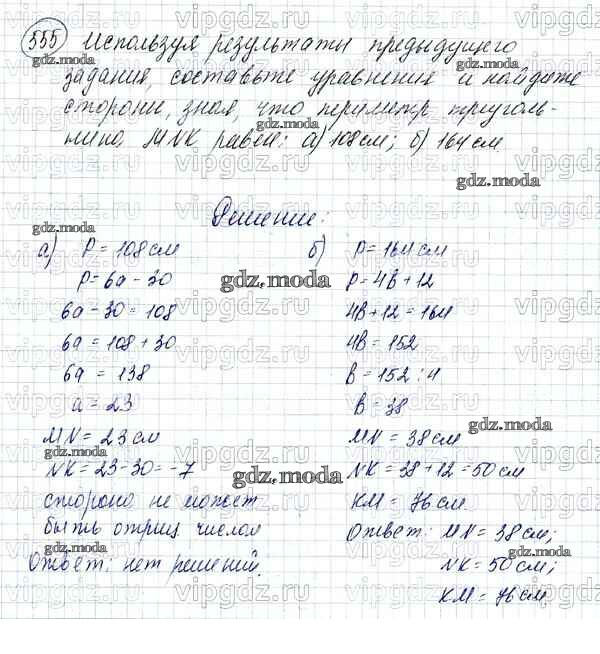 555 Используя результаты предыдущего
задания, составьте уравнение и найдите
стороны, зная, что периметр треуголь-
ника MNK равен: а) 108 см; б) 164 см.
Решение:
а) P = 108 см
P = 6a - 30
6a - 30 = 108
6a = 108 + 30
6a = 138
a = 23
MN = 23 см
NK = 23 - 30 = -7
сторона не может
быть отриц. числом
Ответ: нет решений.
б) P = 164 см
P = 4B + 12
4B + 12 = 164
4B = 152
B = 152 : 4
B = 38
MN = 38 см
NK = 38 + 12 = 50 см
KM = 76 см.
Ответ: MN = 38 см;
NK = 50 см;
KM = 76 см
gdz.moda
vipgdz.ru